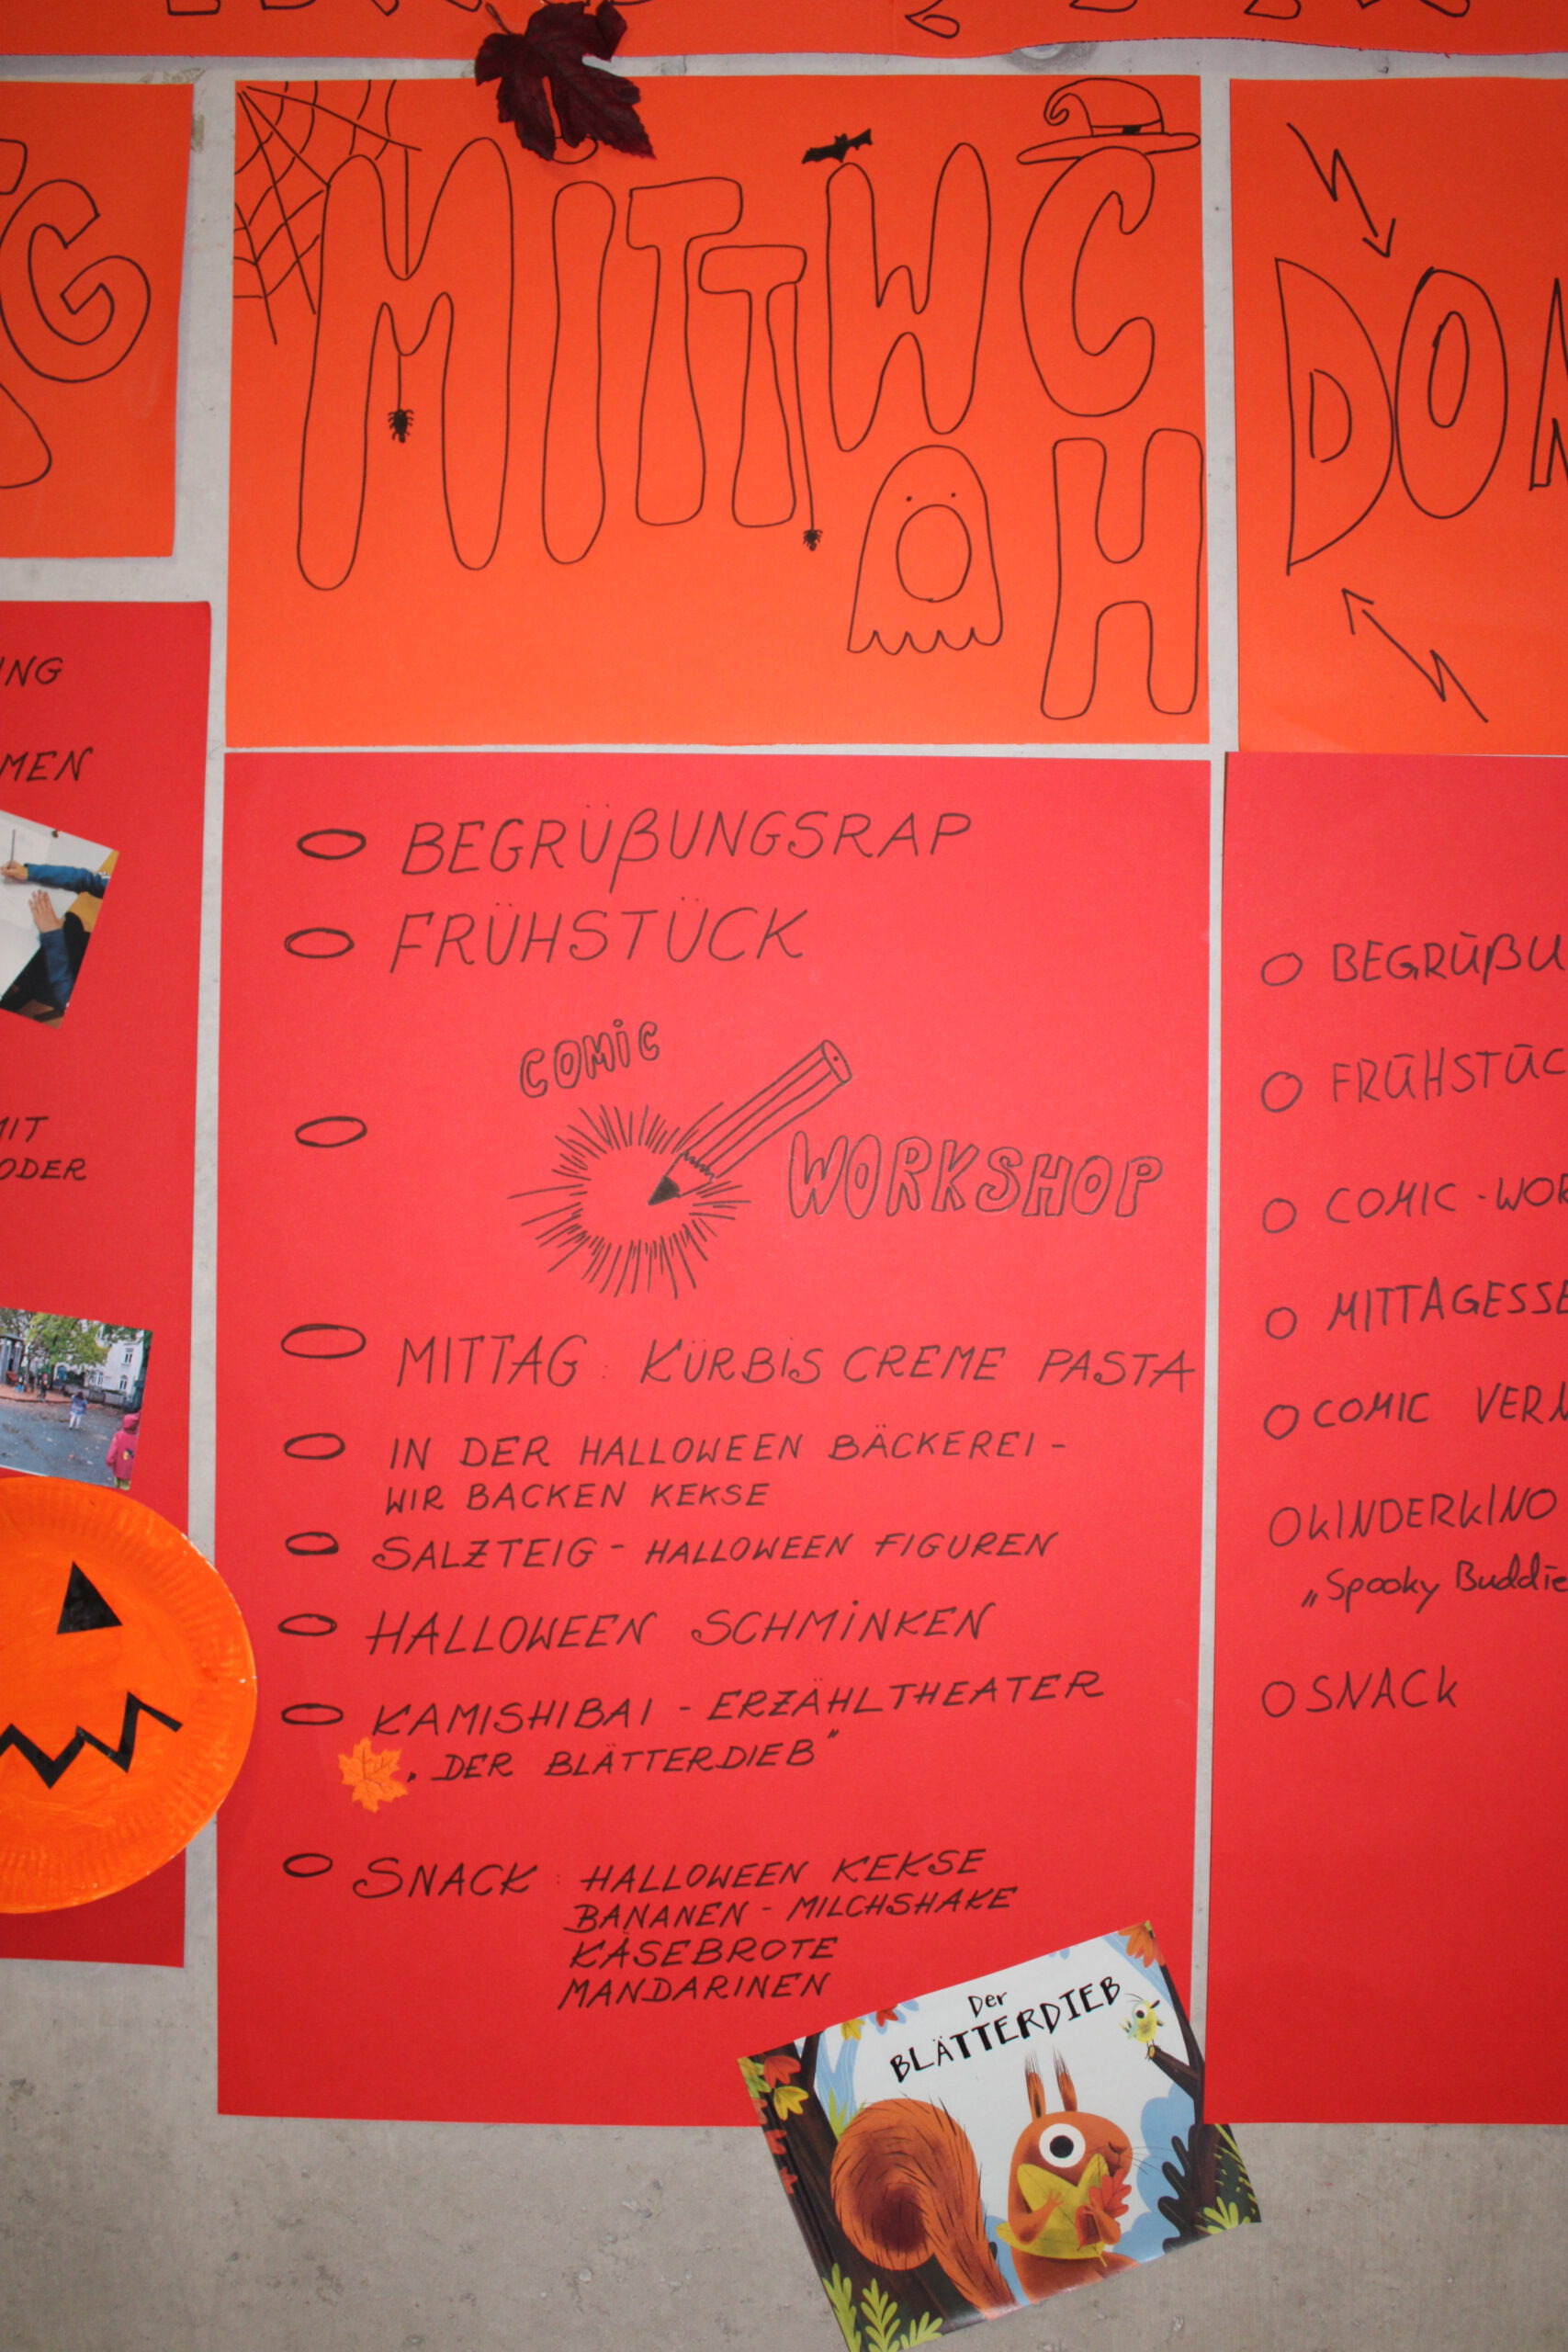 G
MITTWOCH
DO
NG
MEN
MIT
ODER
BEGRÜßUNGSRAP
FRÜHSTÜCK
COMiC
WORKSHOP
MITTAG: KÜRBiS CREME PASTA
IN DER HALLOWEEN BÄCKEREI -
WIR BACKEN KEKSE
SALZTEIG - HALLOWEEN FIGUREN
HALLOWEEN SCHMiNKEN
KAMISHIBAI - ERZÄHLTHEATER
„DER BLÄTTERDIEB"
SNACK: HALLOWEEN KEKSE
BANANEN - MILCHSHAKE
KÄSEBROTE
MANDARINEN
Der
BLÄTTERDIEB
BEGRÜßU
FRÜHSTÜC
COMIC-WOR
MITTAGESSE
COMIC VER
KINDERKINO
„Spooky Buddie
SNACK